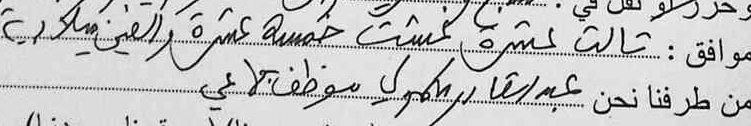 وحرر و نقل في :
موافق : ثالث عشرة غشت خمسة عشرة وألفين ميلادية
من طرفنا نحن عبد القادر موظف جماعي